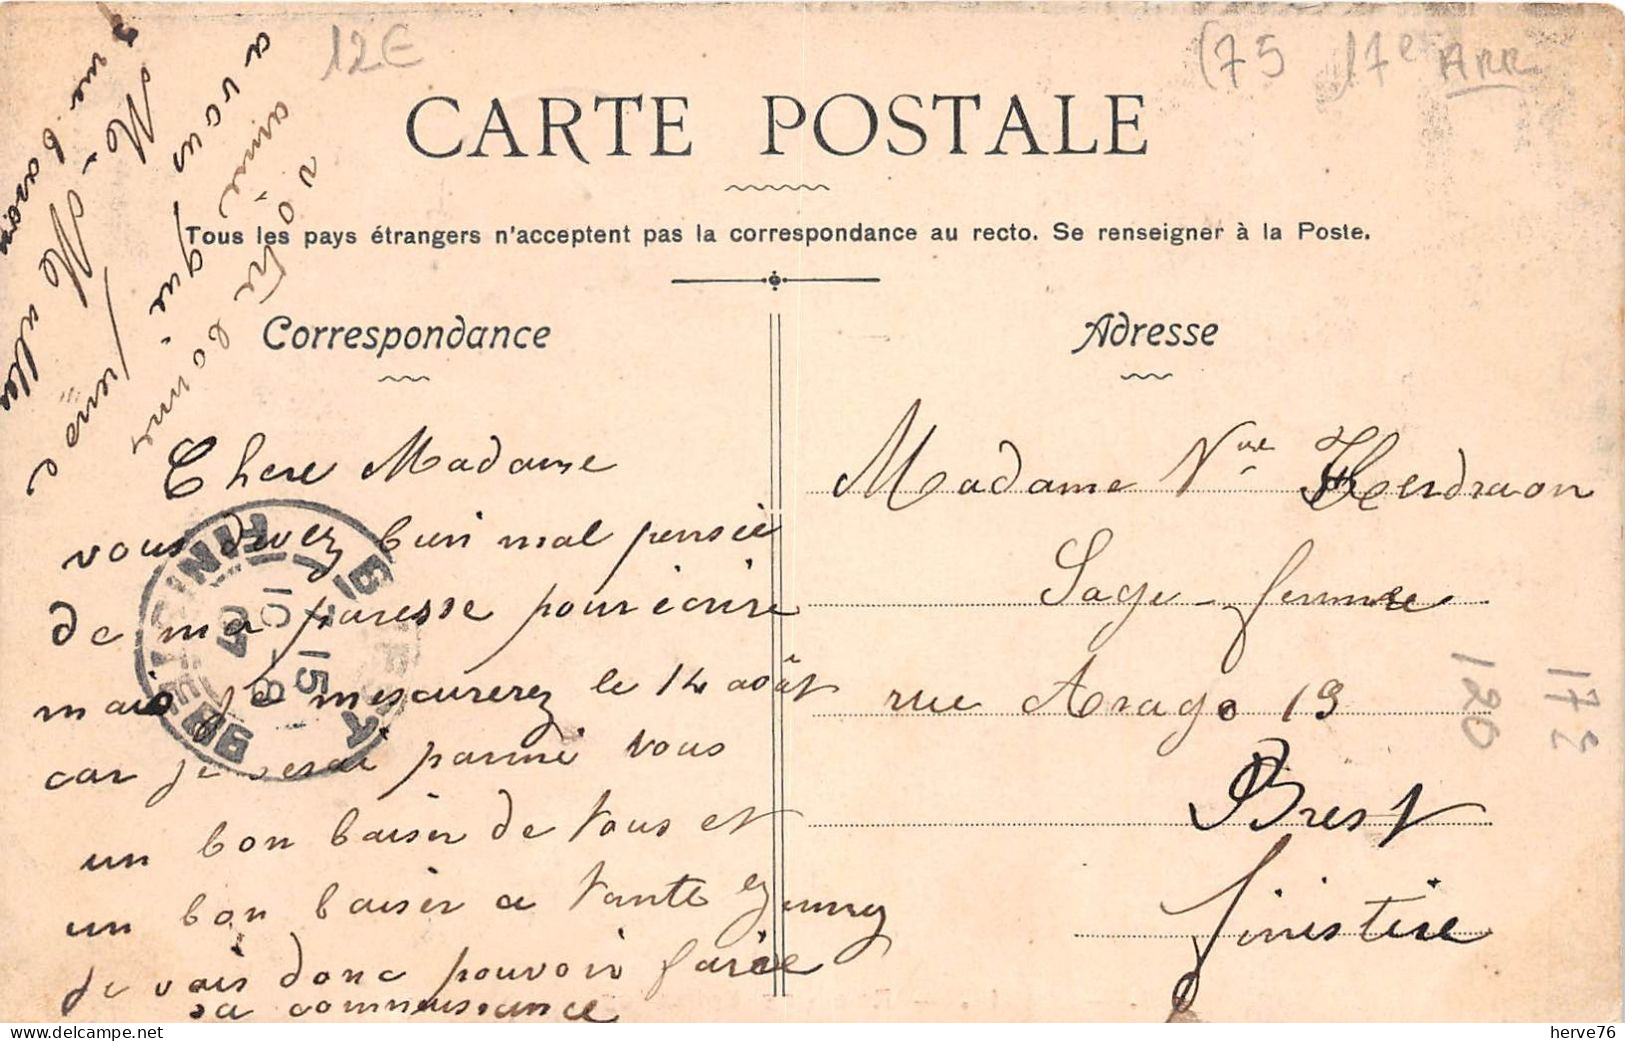 12€
(75 17e ARR
CARTE POSTALE
Tous les pays étrangers n'acceptent pas la correspondance au recto. Se renseigner à la Poste.
Correspondance
Adresse
Chere Madame
vous devez bien mal pensée
de ma paresse pour écrire
mais je mescurerez le 14 août
car je serai parmi vous
un bon baiser de tous et
un bon baiser a tante
je vais donc pouvoir faire
sa connaissance
a vous
amie
votre bonne
Madame Vve Kerdraon
Sage-femme
rue Arago 19
Brest
Finistere
BREST
FINISTERE
15
10-8
07
172
120
herve76